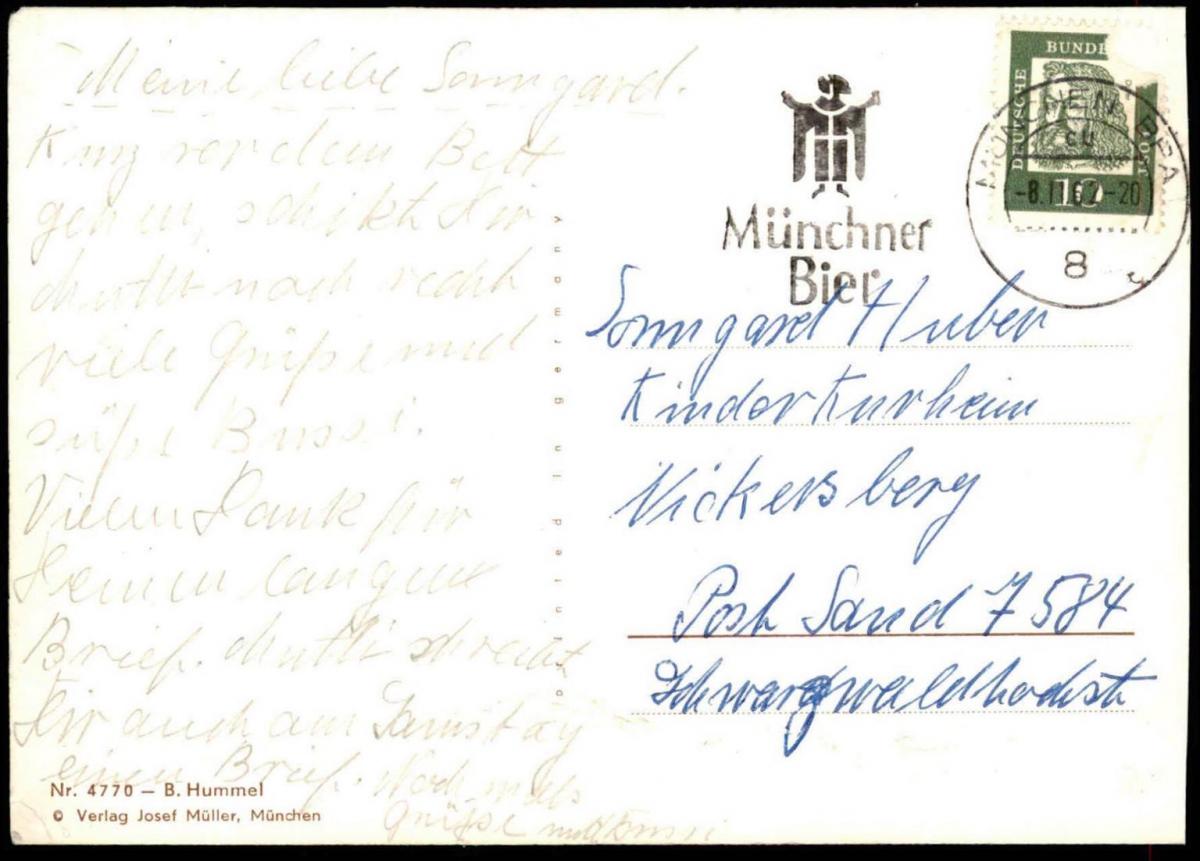 Meine liebe Sonngard.
Kurz vor dem Bett
gehen, schikt Dir
Mutti noch recht
viele Grüße und
süße Bussi.
Vielen Dank für
Deinen langen
Brief. Mutti schreibt
Dir auch am Samstag
einen Brief. Noch mals
Grüße und Bussi
Nr. 4770 – B. Hummel
© Verlag Josef Müller, München
printed in germany
Münchner
Bier
DEUTSCHE
BUNDE
10
MÜNCHEN BPA
cu
-8.11.62-20
8
Sonngard Huber
Kinderkurheim
Nickersberg
Post Sand 7584
Schwarzwaldhochstr